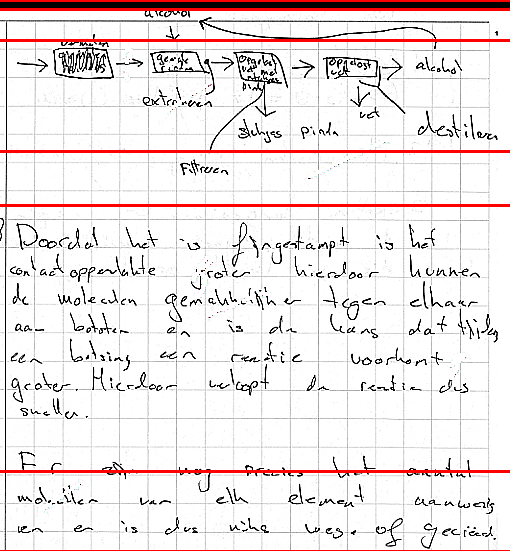 alcohol
gemalen pinda
opgelost vet met stukjes pinda
opgelost vet
alcohol
extraheren
vet
stukjes pinda
destileren
Filtreren
Doordat het is fijngestampt is het
contactoppervlakte groter hierdoor kunnen
de moleculen gemakkelijker tegen elkaar
aan botsten en is de kans dat tijdens
een botsing een reactie voorkomt
groter. Hierdoor verloopt de reactie dus
sneller.
Er zijn nog precies het aantal
moleculen van elk element aanwezig
en er is dus niks weg. of gecreëerd.